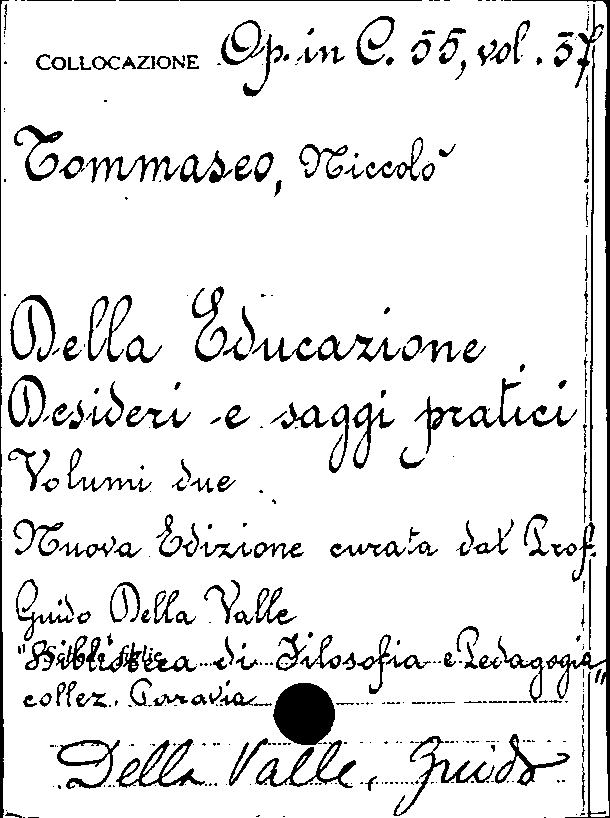 COLLOCAZIONE Op. in C. 55, vol. 37
Tommaseo, Niccolò
Della Educazione
Desideri e saggi pratici
Volumi due
Nuova Edizione curata dal Prof.
Guido Della Valle
"Biblioteca di Filosofia e Pedagogia"
collez. Paravia
Della Valle, Guido